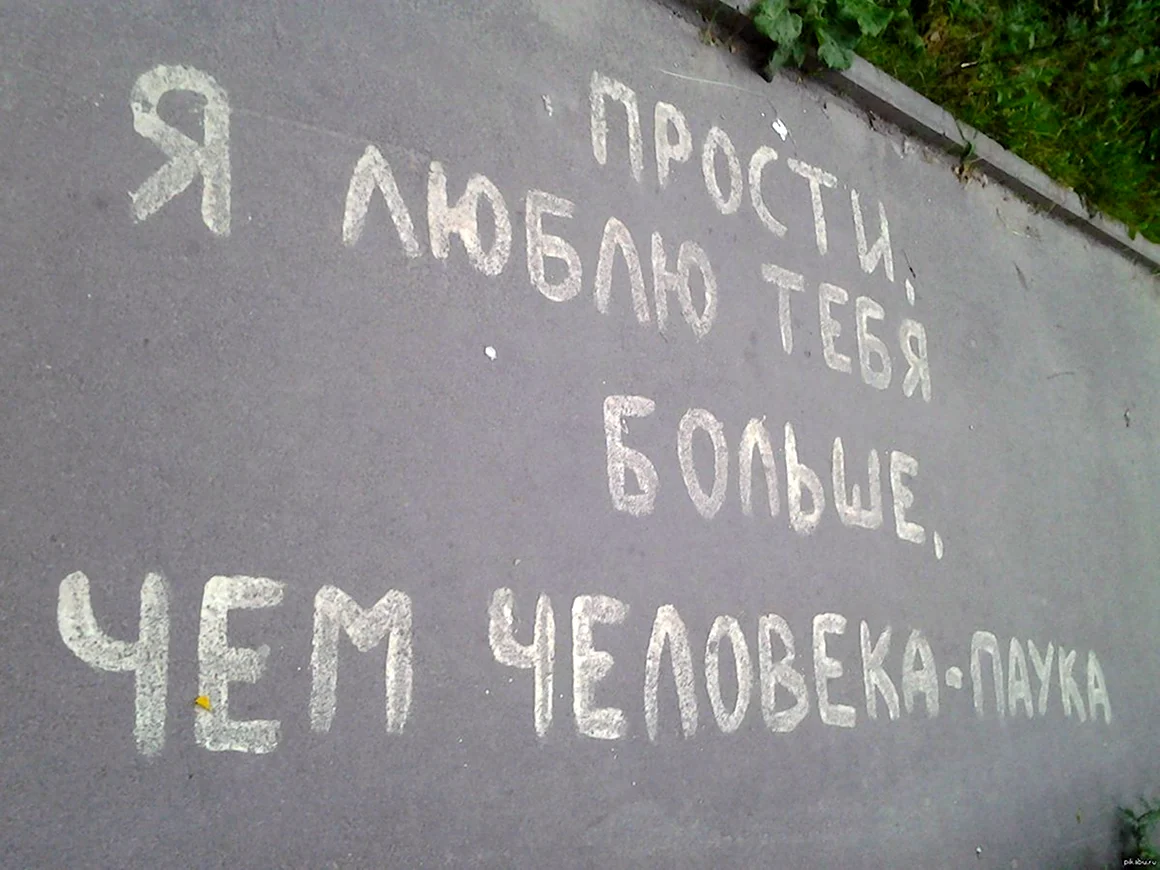 ПРОСТИ,
Я ЛЮБЛЮ ТЕБЯ
БОЛЬШЕ,
ЧЕМ ЧЕЛОВЕКА-ПАУКА
pikabu.ru